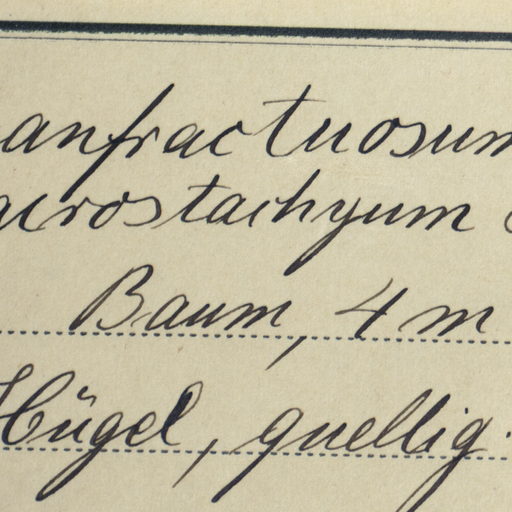 anfractuosum
acrostachyum
Baum, 4 m
Hügel, quellig.